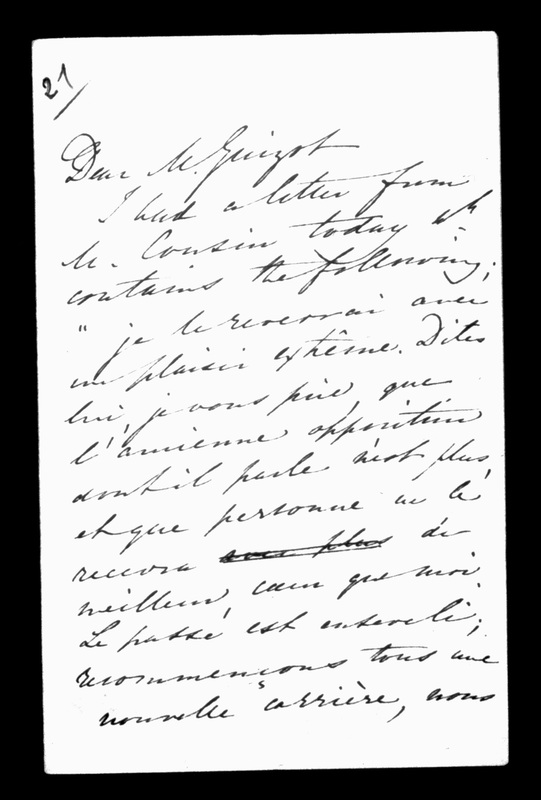 21
Dear M. Guizot
I had a letter from
M. Cousin today wh
contains the following;
" je le recevrai avec
un plaisir extrême. Dites
lui, je vous prie, que
l'ancienne opposition
dont il parle n'est plus
et que personne ne le
recevra avec plus de
meilleur cœur que moi.
Le passé est enseveli;
recommençons tous une
nouvelle carrière, nous